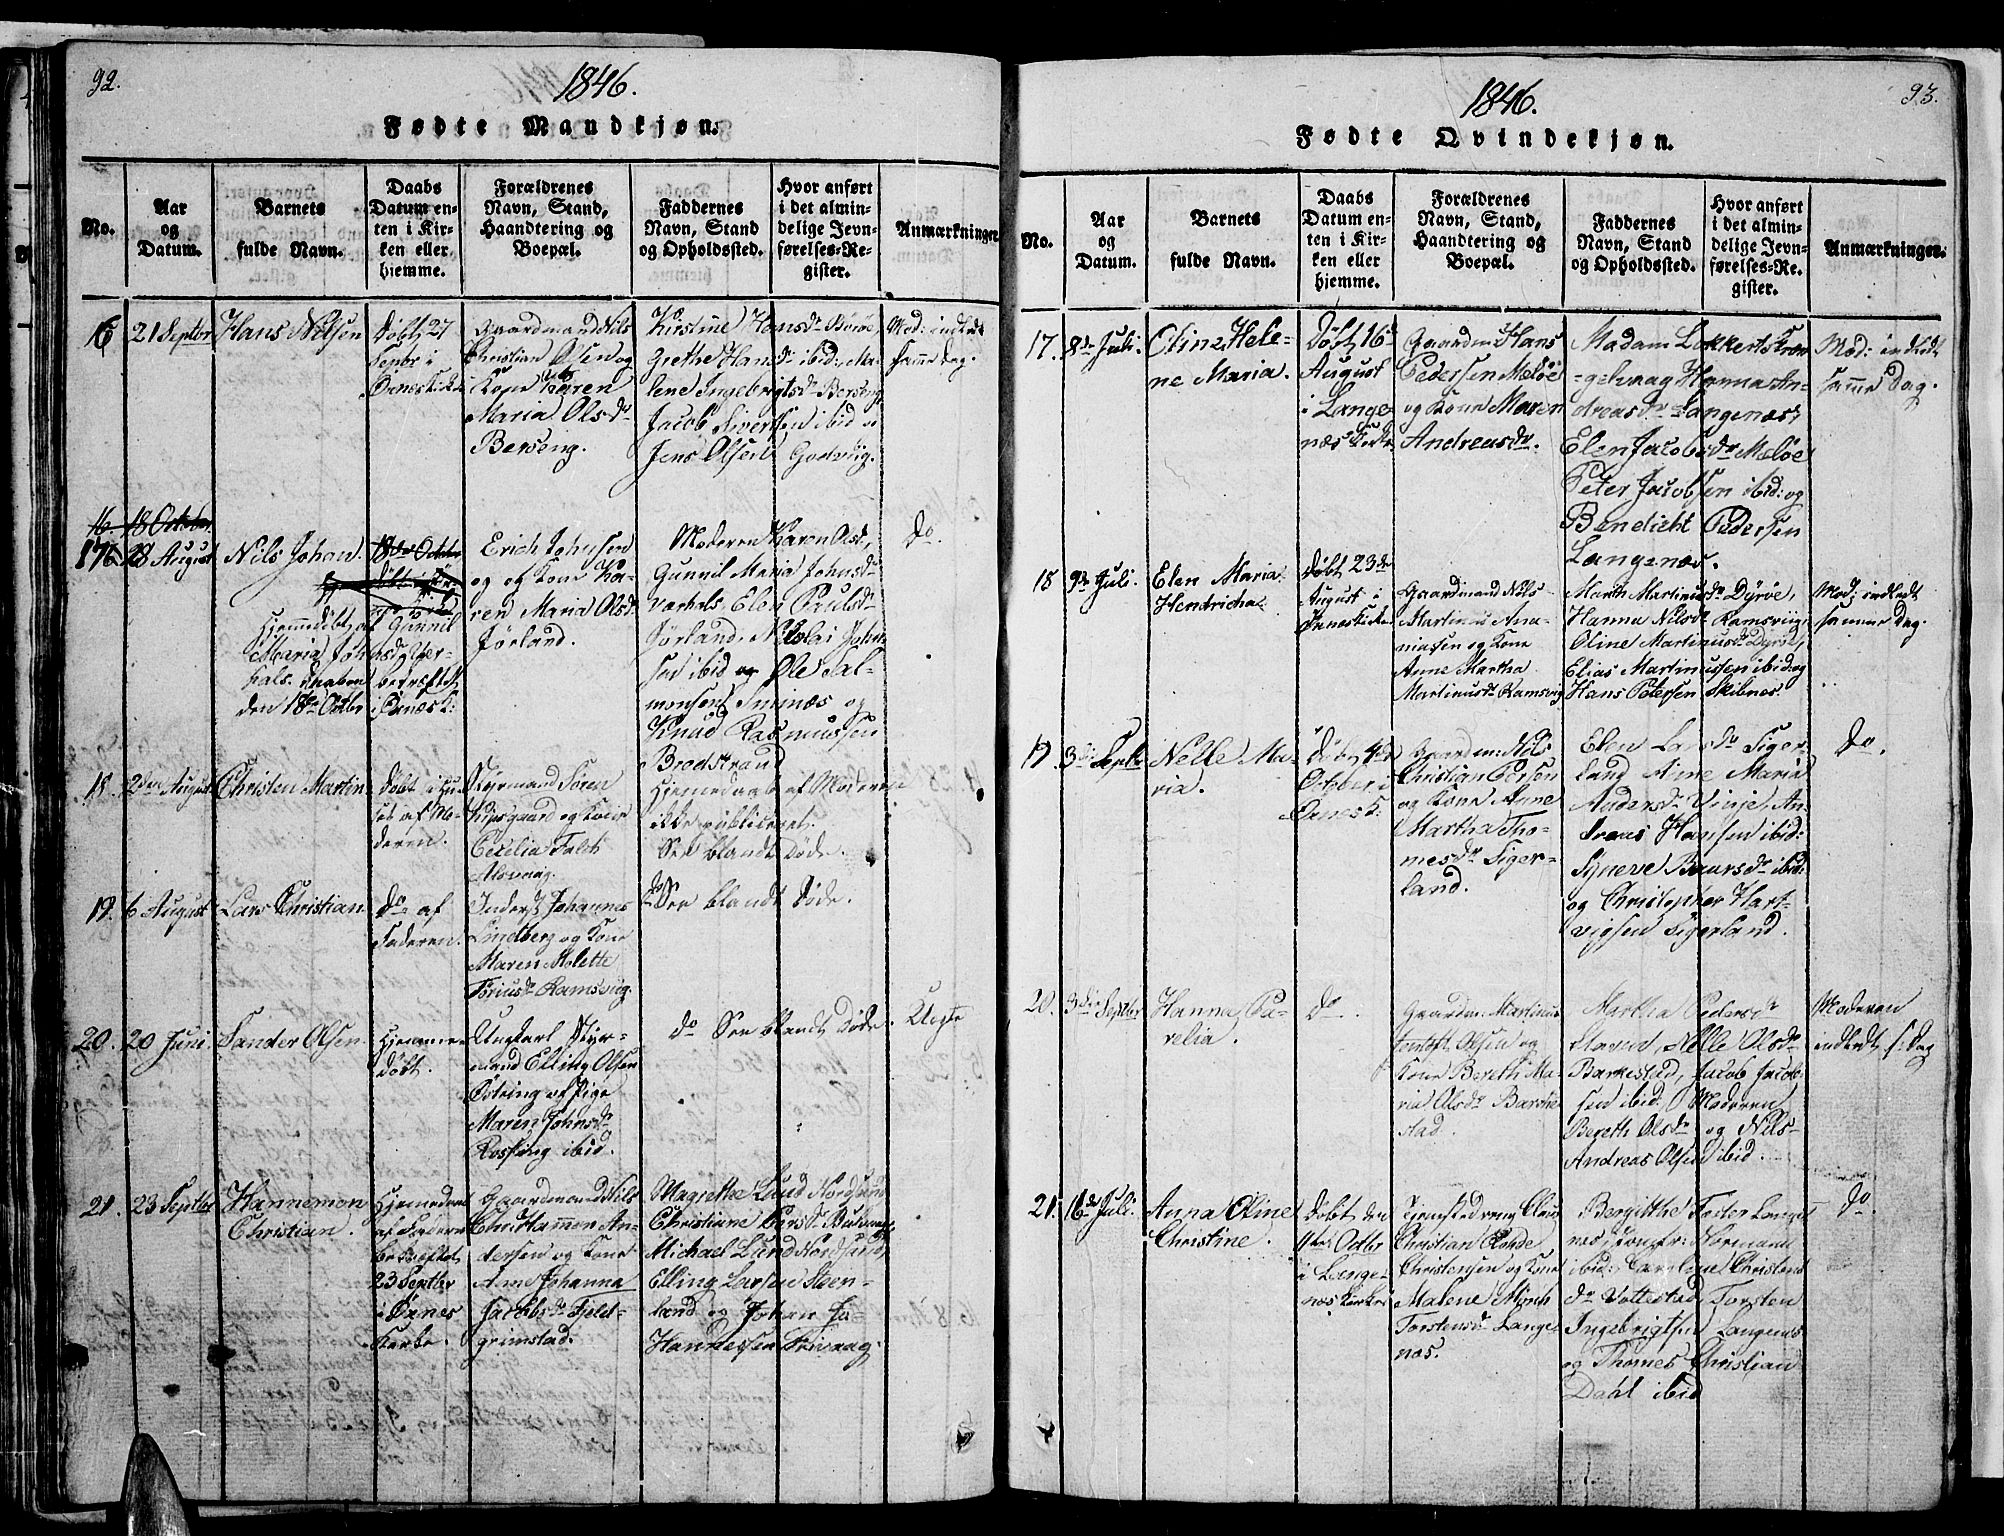 92.
1846.
Fødte Mandkjøn.
No.
Aar
og
Datum.
Barnets
fulde Navn.
Daabs
Datum en-
ten i Kir-
ken eller
hjemme.
Forældrenes
Navn, Stand,
Haandtering og
Boepæl.
Faddernes
Navn, Stand
og Opholdssted.
Hvor anført
i det almin-
delige Jevn-
førelses-Re-
gister.
Anmærkninger
16
21 Septbr
Hans Nilsen
Döbt 27
Septbr i
Ørnes Kirke
Gaardmand Nils
Christian Olsen og
Kone Karen
Maria Olsdr
Berseng.
Kirstine Hansdr Börøe,
Grethe Hansdr ibid: Ma-
lene Ingebrigtsdr Berseng
Jacob Sivertsen ibid og
Jens Olsen Godviig.
Mod: indledt
samme Dag.
16 18 October
17
28 August
Nils Johan.
18de October
Hjemmedöbt af Gunnil
Maria Johnsdr Vær-
hals. Daaben
bekræftet
den 18de Octbr i Ørnes K:
Erich Johnsen
og Kone Ka-
ren Maria Olsdr
Jörland.
Moderen Karen Olsd,
Gunnil Maria Johnsdr
Værhals, Elen Paulsdr
Jörland, Nikolai John-
sen ibid og Ole Sal-
monsen Sminæs og
Knud Rasmussen
Brodstrand
do.
18.
2den August
Christen Martin
Döbt i Hu-
set af Mo-
deren.
Styrmand Sören
Kipsgaard og Kone
Cecilia Falch
Alsvaag.
Hjemmedaab af Moderen
ikke publiceret.
See blandt Döde.
19.
6 August
Lars Christian
do af
Faderen.
Inderst Johannes
Lindberg og Kone
Maren Molette
Toriusdr Ramsviig.
do See blandt Döde.
20.
20 Juni
Sander Olsen
Hjemme-
döbt.
Ungkarl Styr-
mand Elling Olsen
Östeing og Pige
Maren Johnsdr
ibid.
do See blandt Döde.
Uægte
21.
23 Septbr
Hannemon
Christian.
Hjemmedöbt
bekræftet
23 Septbr
i Ørnes
Kirke.
Gaardmand Nils
Chr: Hammon An-
dersen og Kone
Ane Johanna
Jacobsdr Fjeld-
grimstad.
Magrethe Lund Nordsand
Christiane Larsdr
Michael Lund Nordsand,
Elling Larsen Steen-
land og Johan Jo-
Hannessen
93.
1846.
Fødte Qvindekjøn.
No.
Aar
og
Datum.
Barnets
fulde Navn.
Daabs
Datum en-
ten i Kir-
ken eller
hjemme.
Forældrenes
Navn, Stand,
Haandtering og
Boepæl.
Faddernes
Navn, Stand
og Opholdssted.
Hvor anført
i det almin-
delige Jevn-
førelses-Re-
gister.
Anmærkninger.
17.
8de Juli
Oline Hele-
ne Maria.
Döbt 16de
August
i Lange-
næs Kirke
Gaardm: Hans
Pedersen Meløe
og Kone Maren
Andreasdr.
Madam Lokkert Kræn-
gelvaag Hanna An-
dreasdr Langenæs,
Elen Jacobsdr Meløe
Peter Jacobsen ibid: og
Bendicht Pedersen
Langenæs.
Mod: indledt
samme Dag.
18
9de Juli.
Elen Maria
Hendricha
Döbt 23de
August i
Ørnes Kirke
Gaardmand Nils
Martinus Ana-
niassen og Kone
Anne Martha
Martinusdr Ramsvig
Marth Martinusdr Dyrøe,
Hanna Nilsdr Ramsviig
Oline Martinusdr Dyrøe,
Elias Martinussen ibid: og
Hans Petersen Skibnes.
Mod: indledt
samme Dag.
19
3die Septbr
Nelle Ma-
ria.
Döbt 4de
October i
Ørnes K:
Gaardm: Nils
Christian Persen
og Kone Anne
Martha Tho-
mesdr Siger-
land.
Elen Larsdr Siger-
land Ane Maria
Andersdr Vinje, An-
dreas Hansen ibid:
Syneve Baarsdr ibid:
og Christopher Hart-
vigsen Sigerland.
do.
20.
3die Septbr
Hanna Pa-
relia.
do.
Gaardm. Martinus
Tentoft Olsen og
Kone Bereth Ma-
ria Olsdr Barkie-
stad.
Martha Pedersdr
Staven, Nelle Olsdr
Barkestad, Jacob Jacob-
sen ibid. Moderen
Bereth Olsdr og Nils
Andreas Olsen ibid.
Moderen
indledt s: Dag
21.
16de Juli.
Anna Oline
Christine.
Döbt den
11te Octbr
i Lange-
næs Kirke
Tjenstedreng Claus
Christian Rohde
Christensen og Kone
Malene Münch
Torstensdr Lange-
næs.
Bergitthe Foster Lange-
næs, Jomfr: Normann
ibid: Carolene Christens
dr Vottestad, Torsten
Ingebrigtsen Langenæs
og Thomes Christian
Dahl ibid
do.